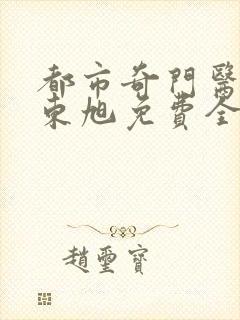 都市奇門醫
東旭免費全
趙璽寶